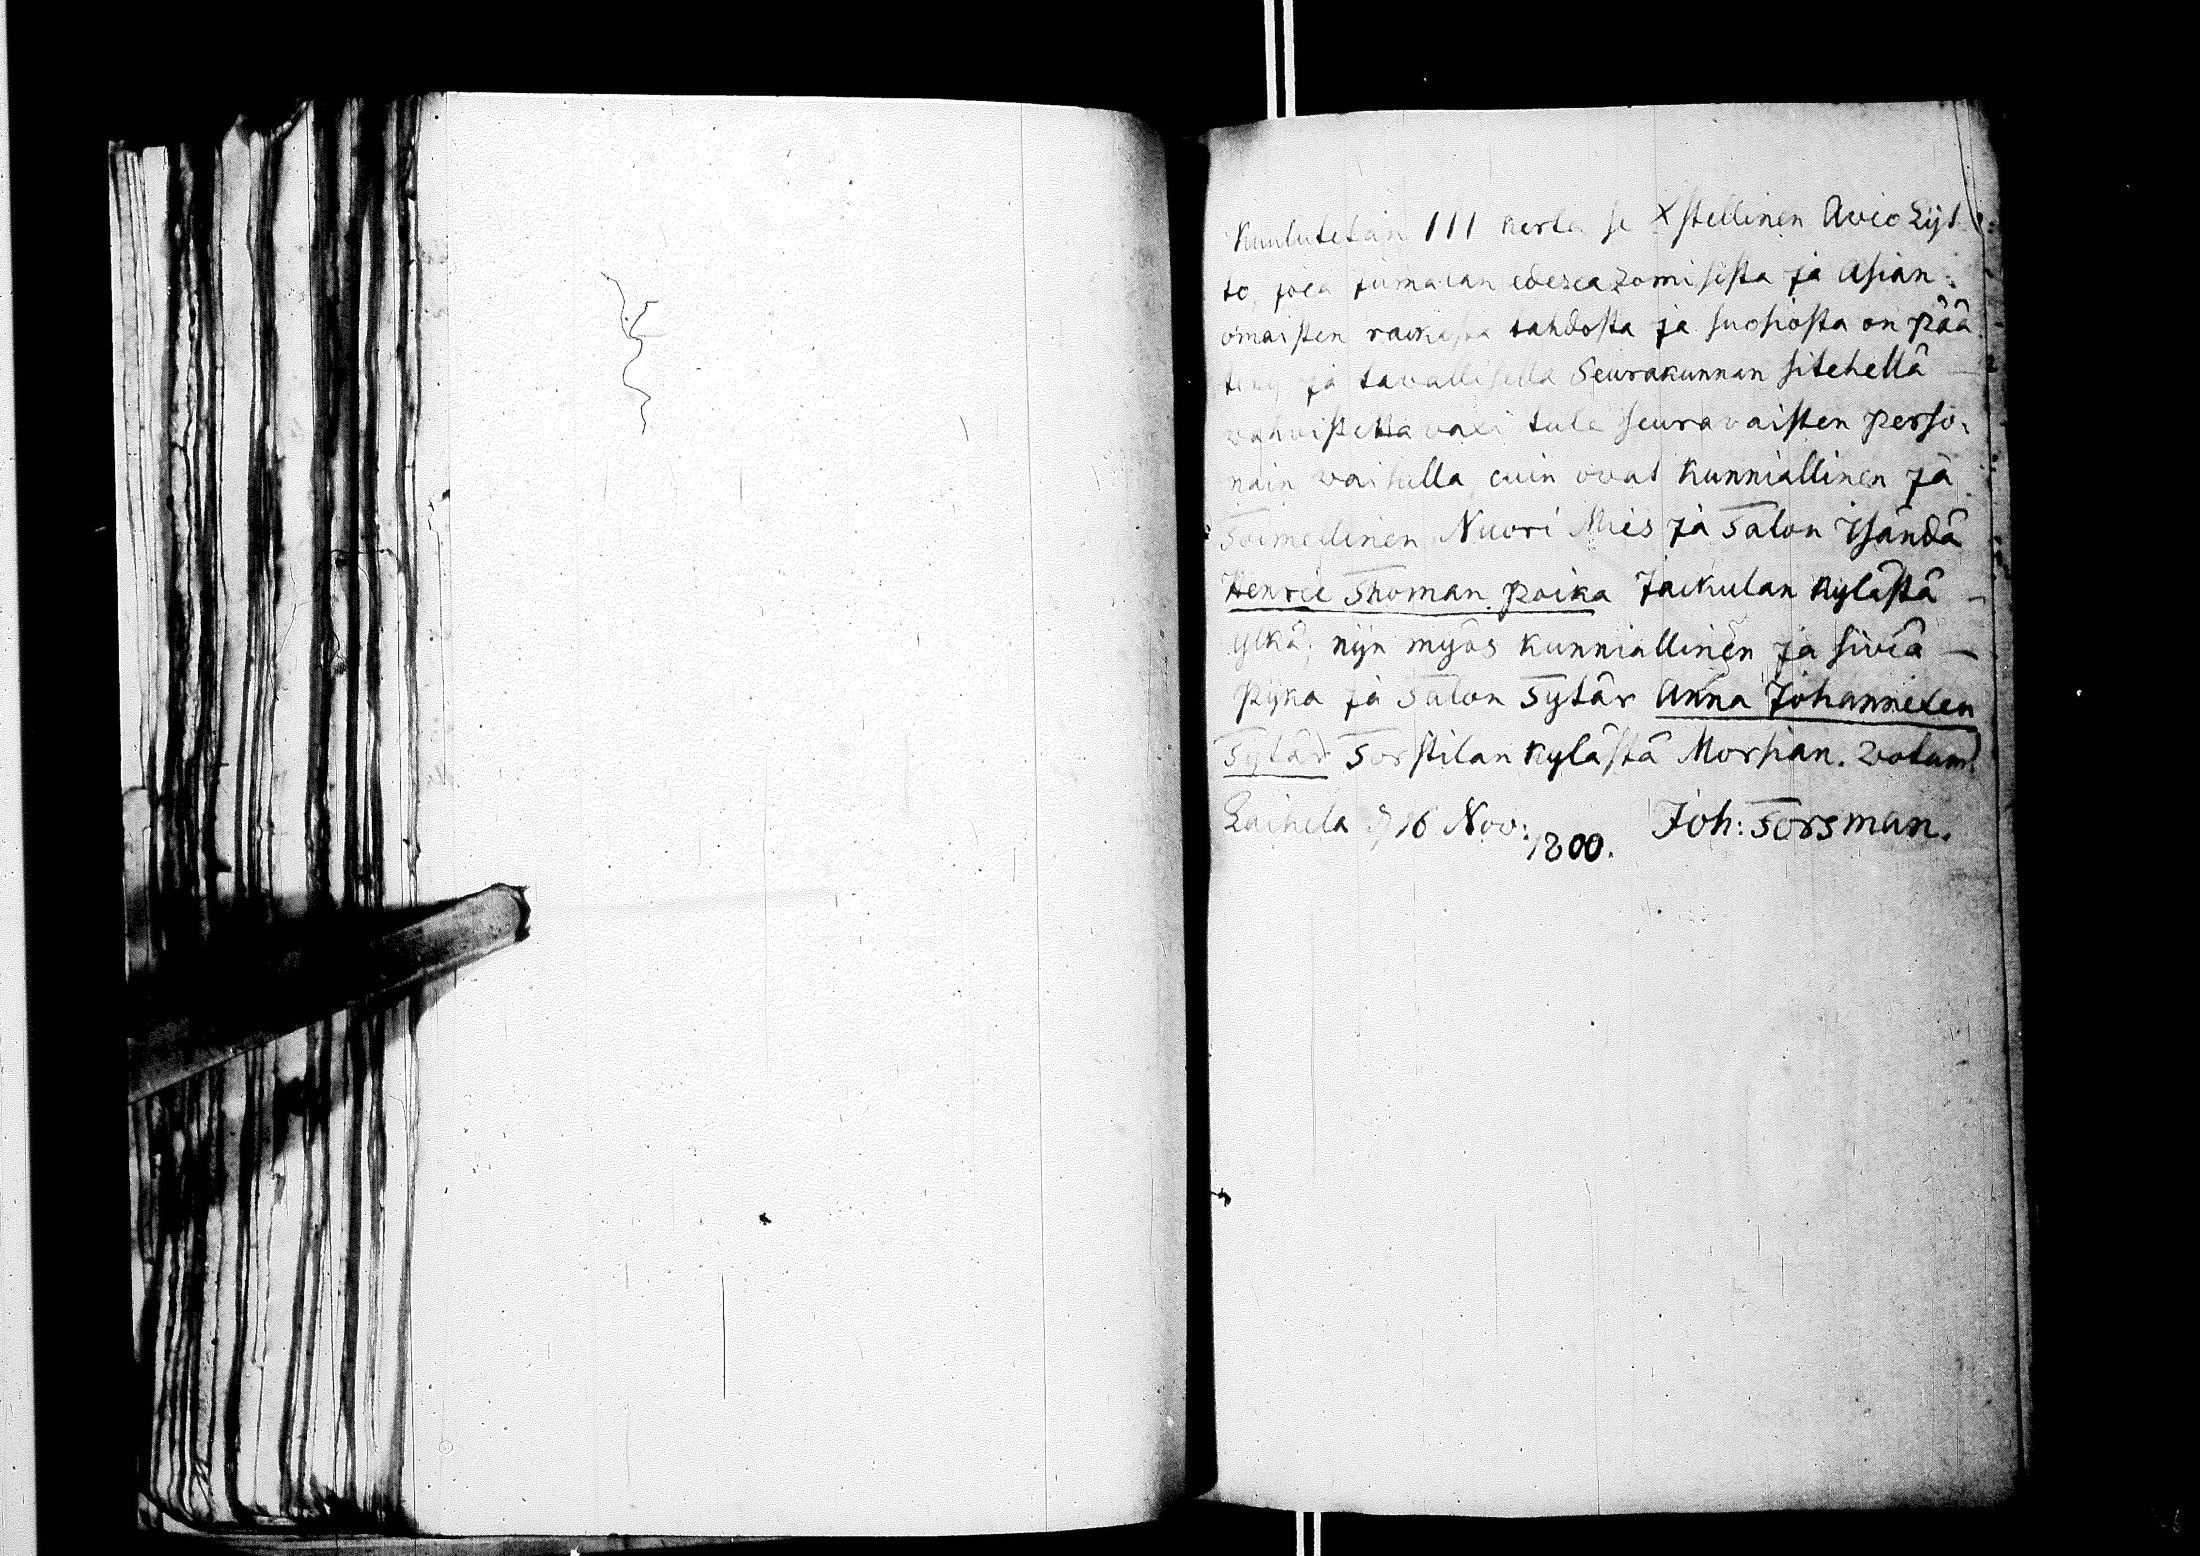 Kuulutetan III kerta se Xstellinen Avio Lijt
to, joca jumalan edescazomisesta ja Asian:
omaisten rackasta tahdosta ja suosiosta on pää
tetty ja tavallisella Seurakunnan sitehellä
wahvistettavaxi tule seuravaisten perso:
nain waihella, cuin ovat Kunniallinen ja
Toimellinen Nuori Mies ja Talon Isändä
Henric Thoman poika Jackulan kylästä
ylkä, nijn myös kunniallinen ja siviä
pijka ja Talon Tytär Anna Johanneten
Tytär Torstilan kylästä Morsian. votum.
Laihela d 16 Nov: 1800. Joh: Forsman.